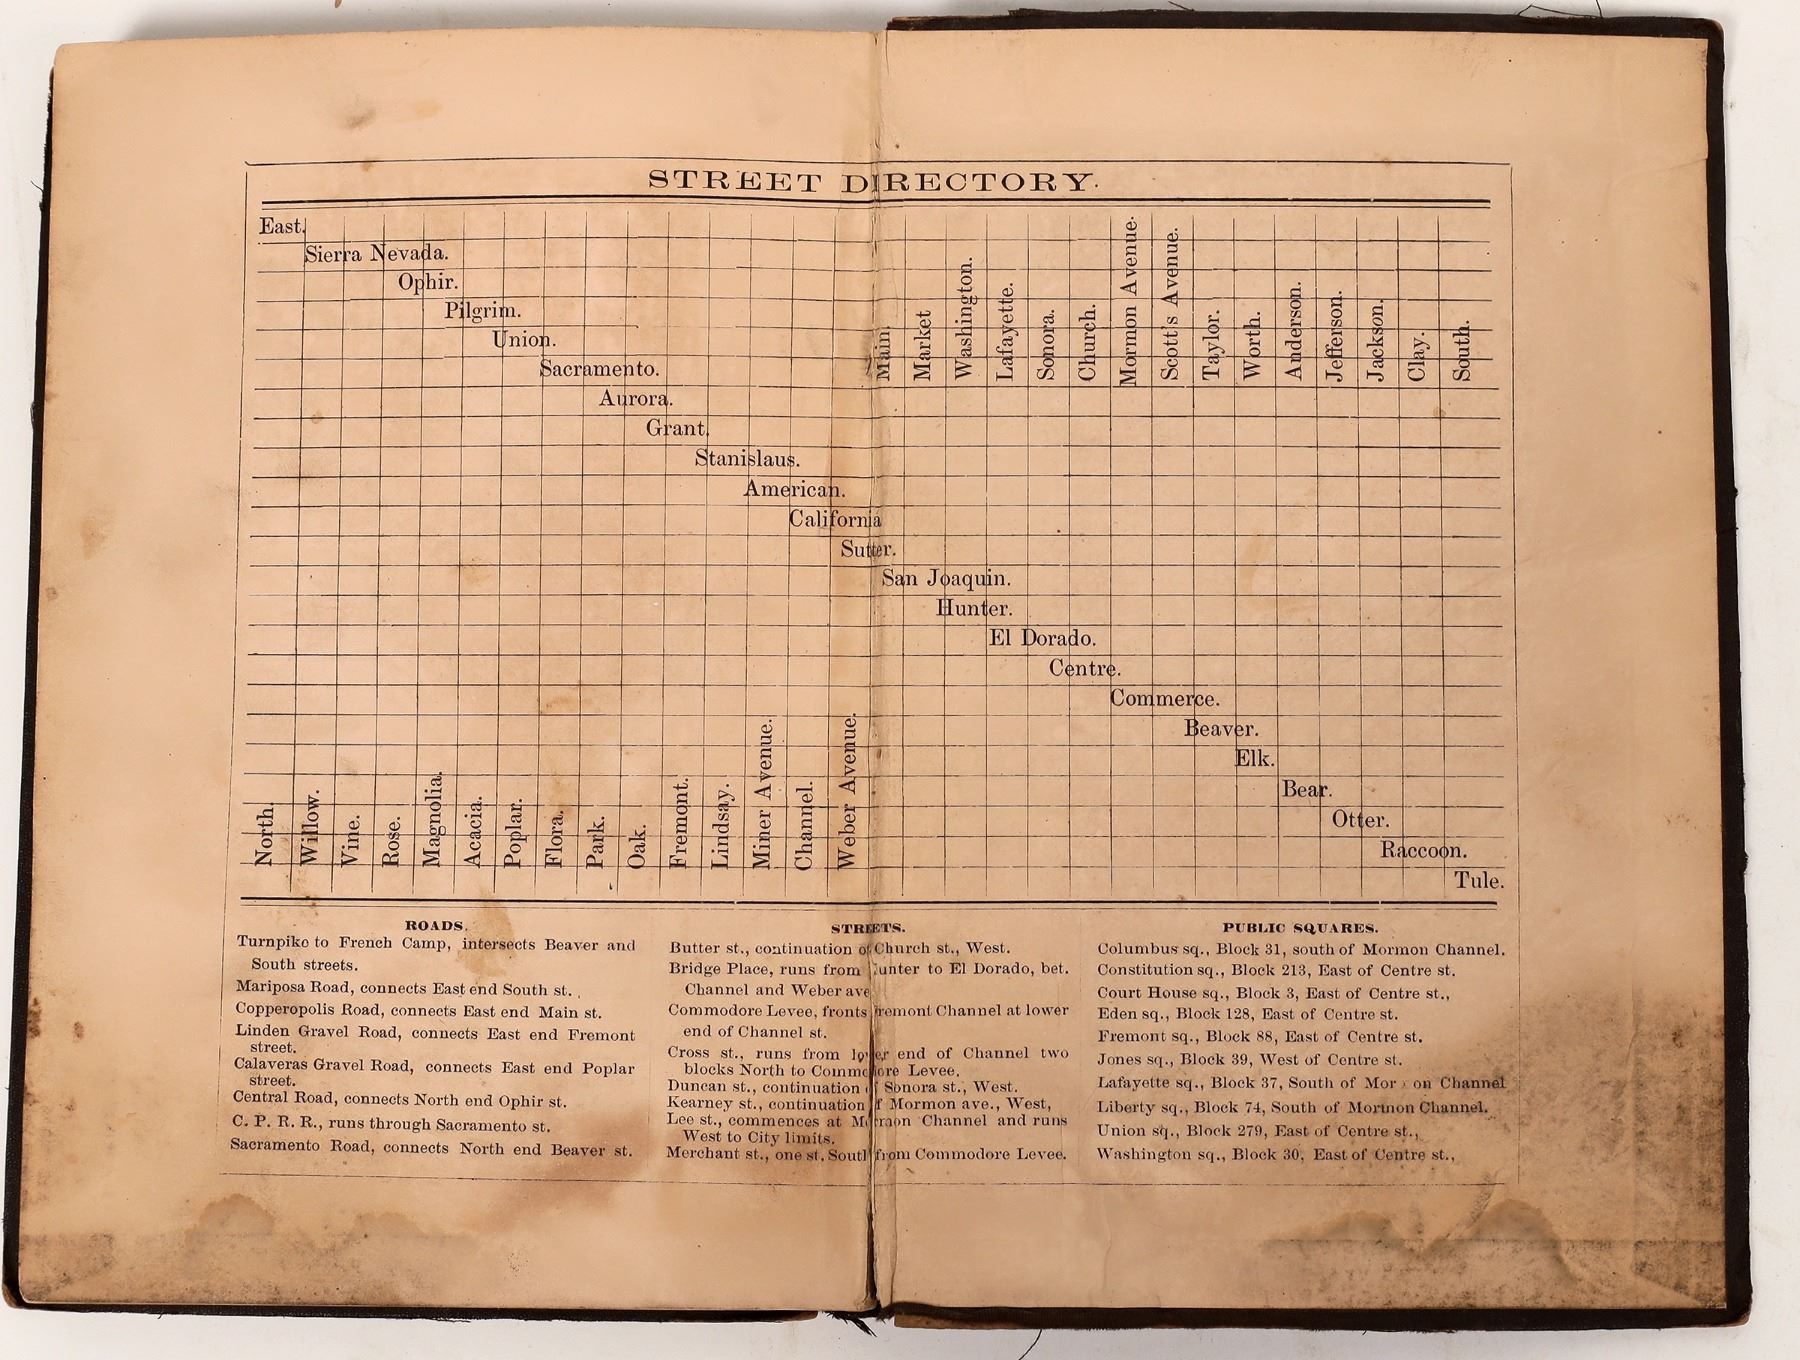 STREET DIRECTORY.
East.
Sierra Nevada.
Ophir.
Pilgrim.
Union.
Sacramento.
Aurora.
Grant.
Stanislaus.
American.
California
Sutter.
San Joaquin.
Hunter.
El Dorado.
Centre.
Commerce.
Beaver.
Elk.
Bear.
Otter.
Raccoon.
Tule.
Main.
Market
Washington.
Lafayette.
Sonora.
Church.
Mormon Avenue.
Scott's Avenue.
Taylor.
Worth.
Anderson.
Jefferson.
Jackson.
Clay.
South.
North.
Willow.
Vine.
Rose.
Magnolia.
Acacia.
Poplar.
Flora.
Park.
Oak.
Fremont.
Lindsay.
Miner Avenue.
Channel.
Weber Avenue.
ROADS.
Turnpike to French Camp, intersects Beaver and
South streets.
Mariposa Road, connects East end South st.
Copperopolis Road, connects East end Main st.
Linden Gravel Road, connects East end Fremont
street.
Calaveras Gravel Road, connects East end Poplar
street.
Central Road, connects North end Ophir st.
C. P. R. R., runs through Sacramento st.
Sacramento Road, connects North end Beaver st.
STREETS.
Butter st., continuation of Church st., West.
Bridge Place, runs from Hunter to El Dorado, bet.
Channel and Weber ave
Commodore Levee, fronts Fremont Channel at lower
end of Channel st.
Cross st., runs from lower end of Channel two
blocks North to Commodore Levee.
Duncan st., continuation of Sonora st., West.
Kearney st., continuation of Mormon ave., West,
Lee st., commences at Mormon Channel and runs
West to City limits.
Merchant st., one st. South from Commodore Levee.
PUBLIC SQUARES.
Columbus sq., Block 31, south of Mormon Channel.
Constitution sq., Block 213, East of Centre st.
Court House sq., Block 3, East of Centre st.,
Eden sq., Block 128, East of Centre st.
Fremont sq., Block 88, East of Centre st.
Jones sq., Block 39, West of Centre st.
Lafayette sq., Block 37, South of Mor on Channel
Liberty sq., Block 74, South of Mormon Channel.
Union sq., Block 279, East of Centre st.,
Washington sq., Block 30, East of Centre st.,